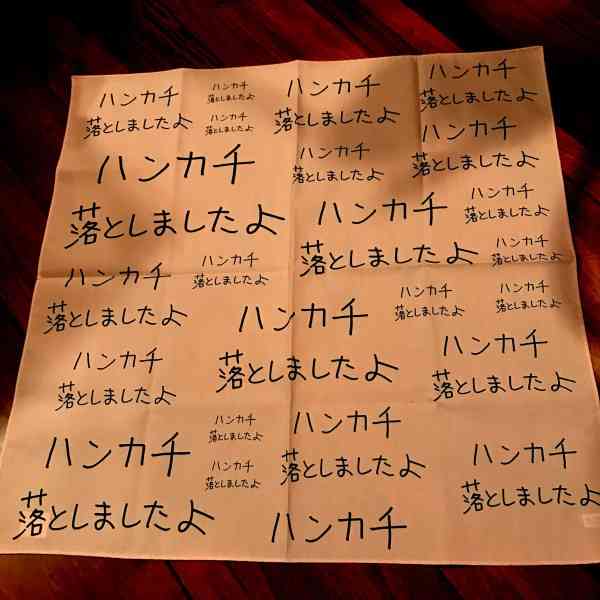 ハンカチ
落としましたよ
ハンカチ
落としましたよ
ハンカチ
落としましたよ
ハンカチ
落としましたよ
ハンカチ
落としましたよ
ハンカチ
落としましたよ
ハンカチ
落としましたよ
ハンカチ
落としましたよ
ハンカチ
落としましたよ
ハンカチ
落としましたよ
ハンカチ
落としましたよ
ハンカチ
落としましたよ
ハンカチ
落としましたよ
ハンカチ
落としましたよ
ハンカチ
落としましたよ
ハンカチ
落としましたよ
ハンカチ
落としましたよ
ハンカチ
落としましたよ
ハンカチ
落としましたよ
ハンカチ
落としましたよ
ハンカチ
落としましたよ
ハンカチ
落としましたよ
ハンカチ
落としましたよ
ハンカチ